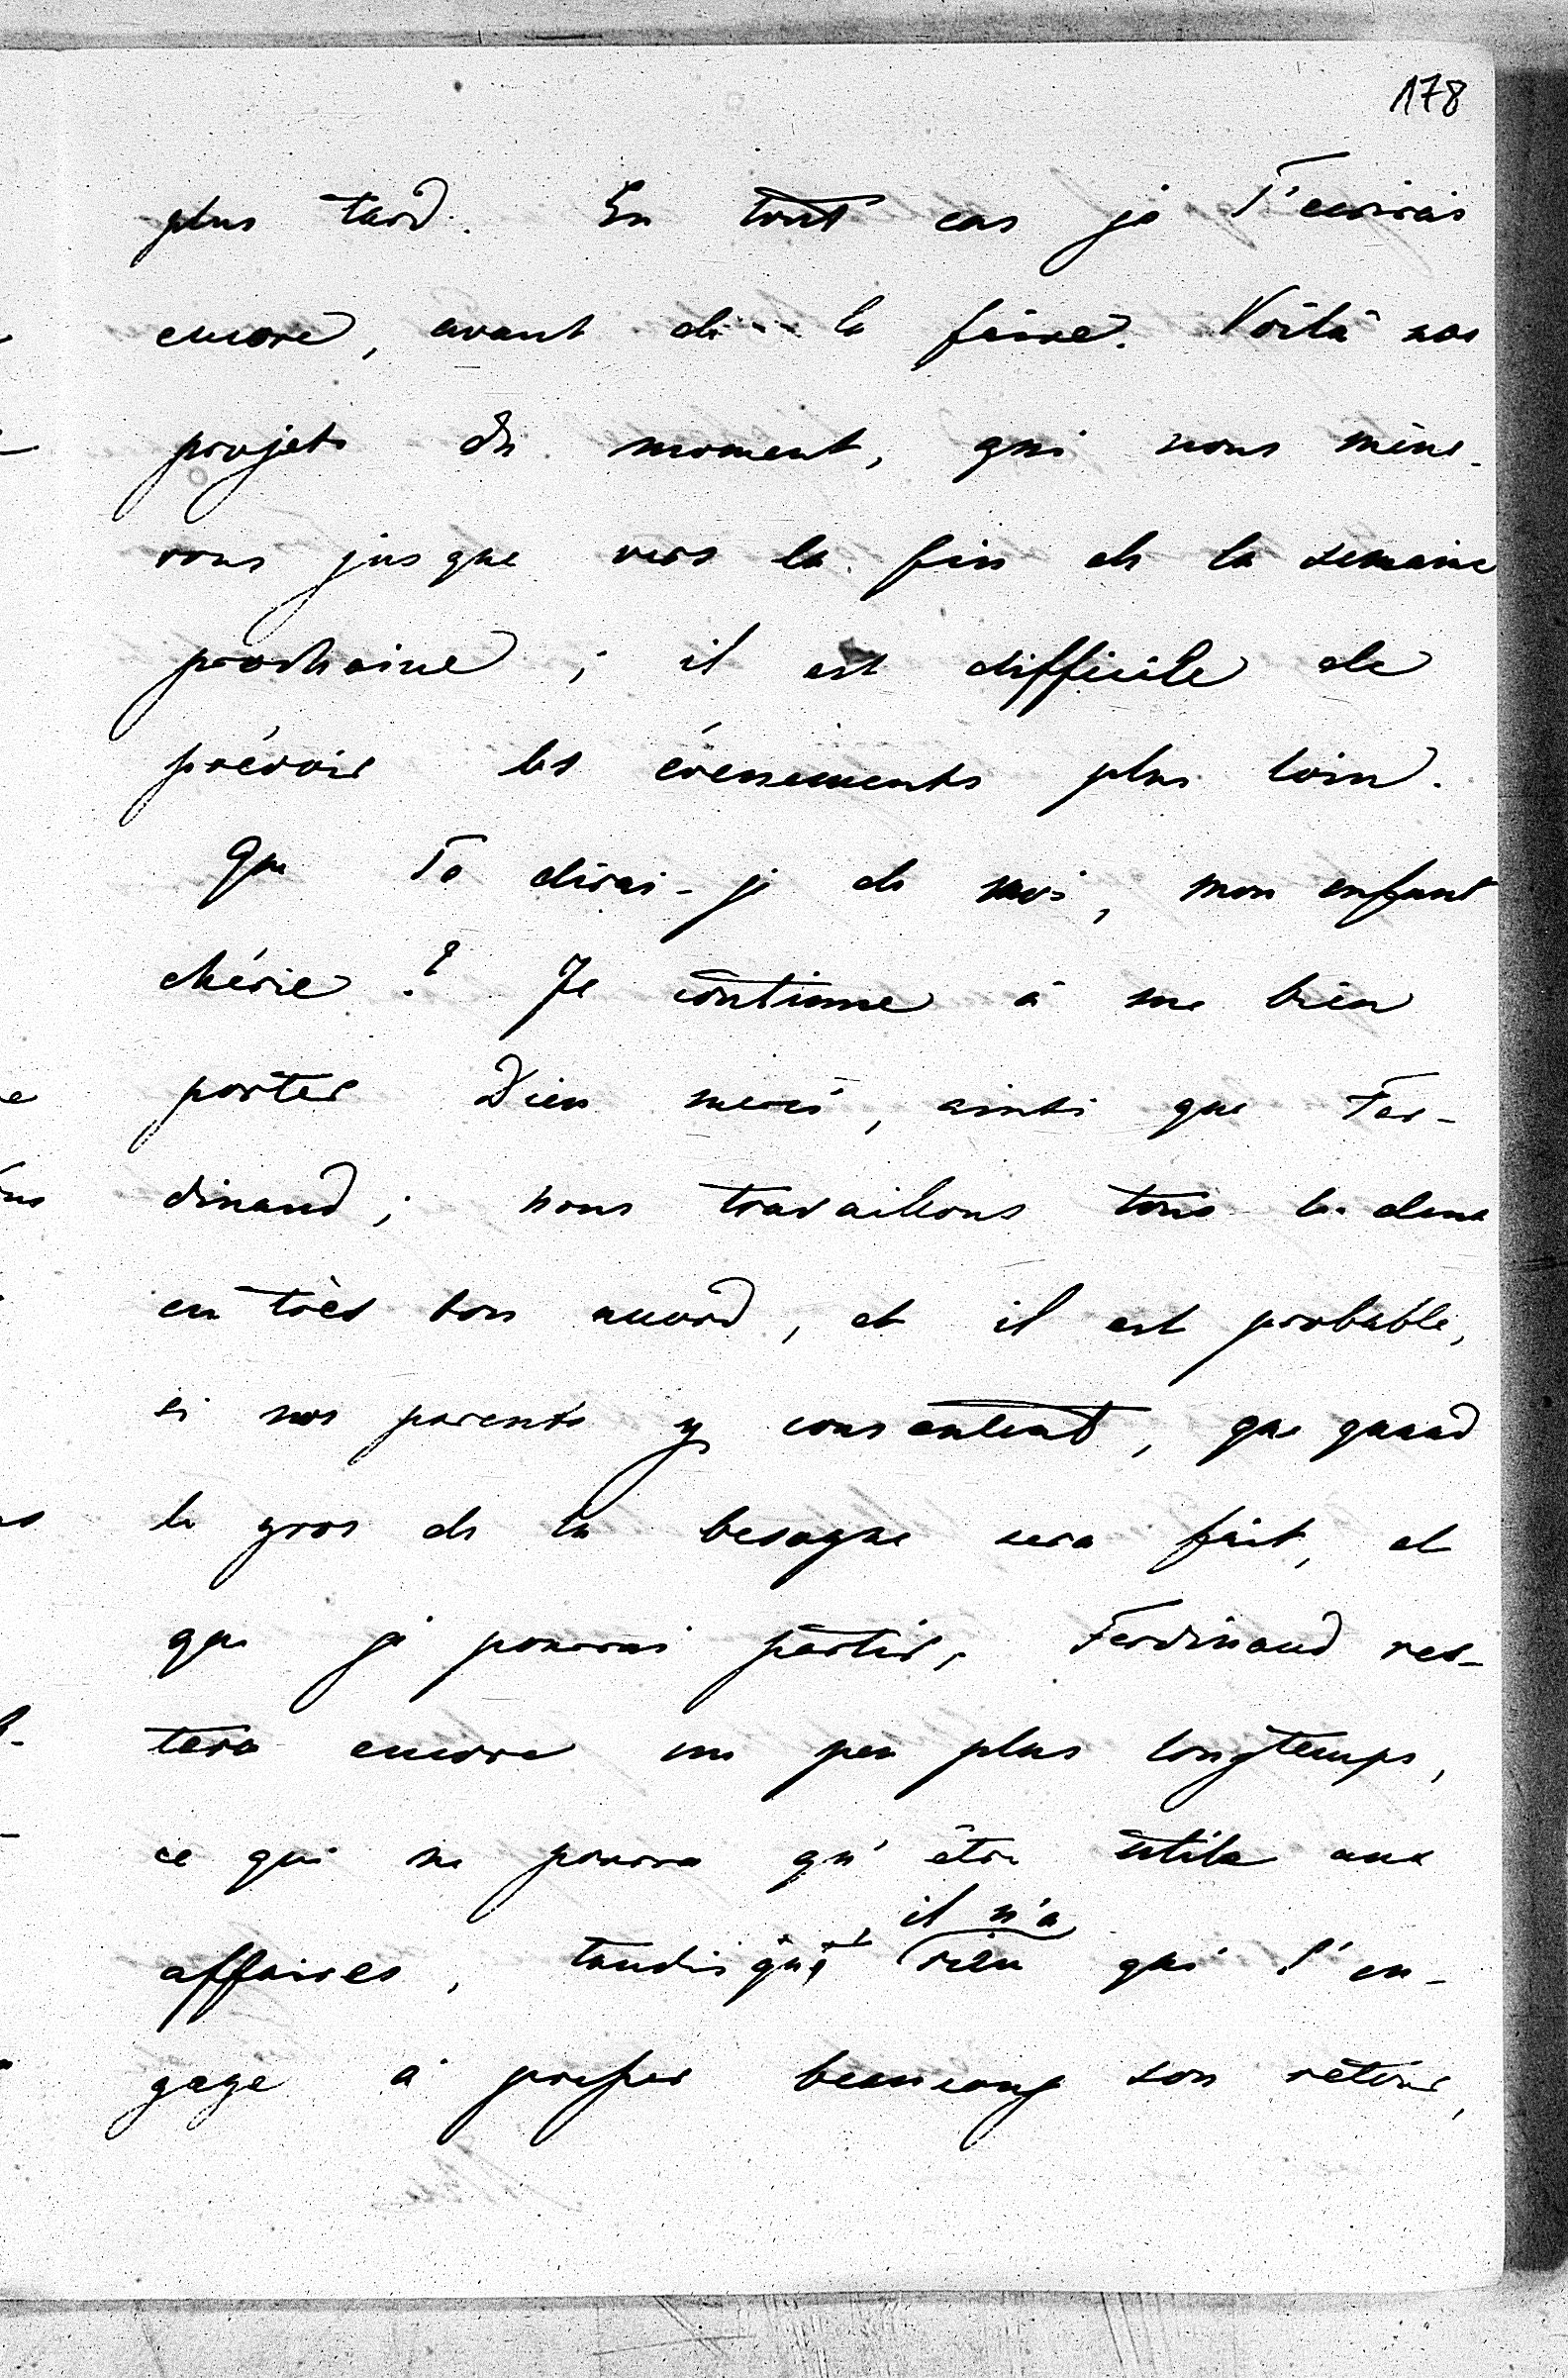 178
plus tard. En tout cas je T'ecrirais
encore, avant de le faire. Voilà nos
projets du moment, qui nous mène-
rons jusque vers la fin de la semaine
prochaine ; il est difficile de
prévoir les évenements plus loin.
Que Te dirai-je de moi, mon enfant
chérie ? Je continue à me bien
porter Dieu merci, ainsi que Fer-
dinand ; nous travaillons tous les deux
en très bon accord, et il est probable,
si nos parents y consentent, que quand
le gros de la besogne sera fait, et
que je pourrai partir, Ferdinand res-
tera encore un peu plus longtemps,
ce qui ne pourra qu'être utile aux
il n'a
affaires, tandis que rien qui l'en-
gage à presser beaucoup son retour,